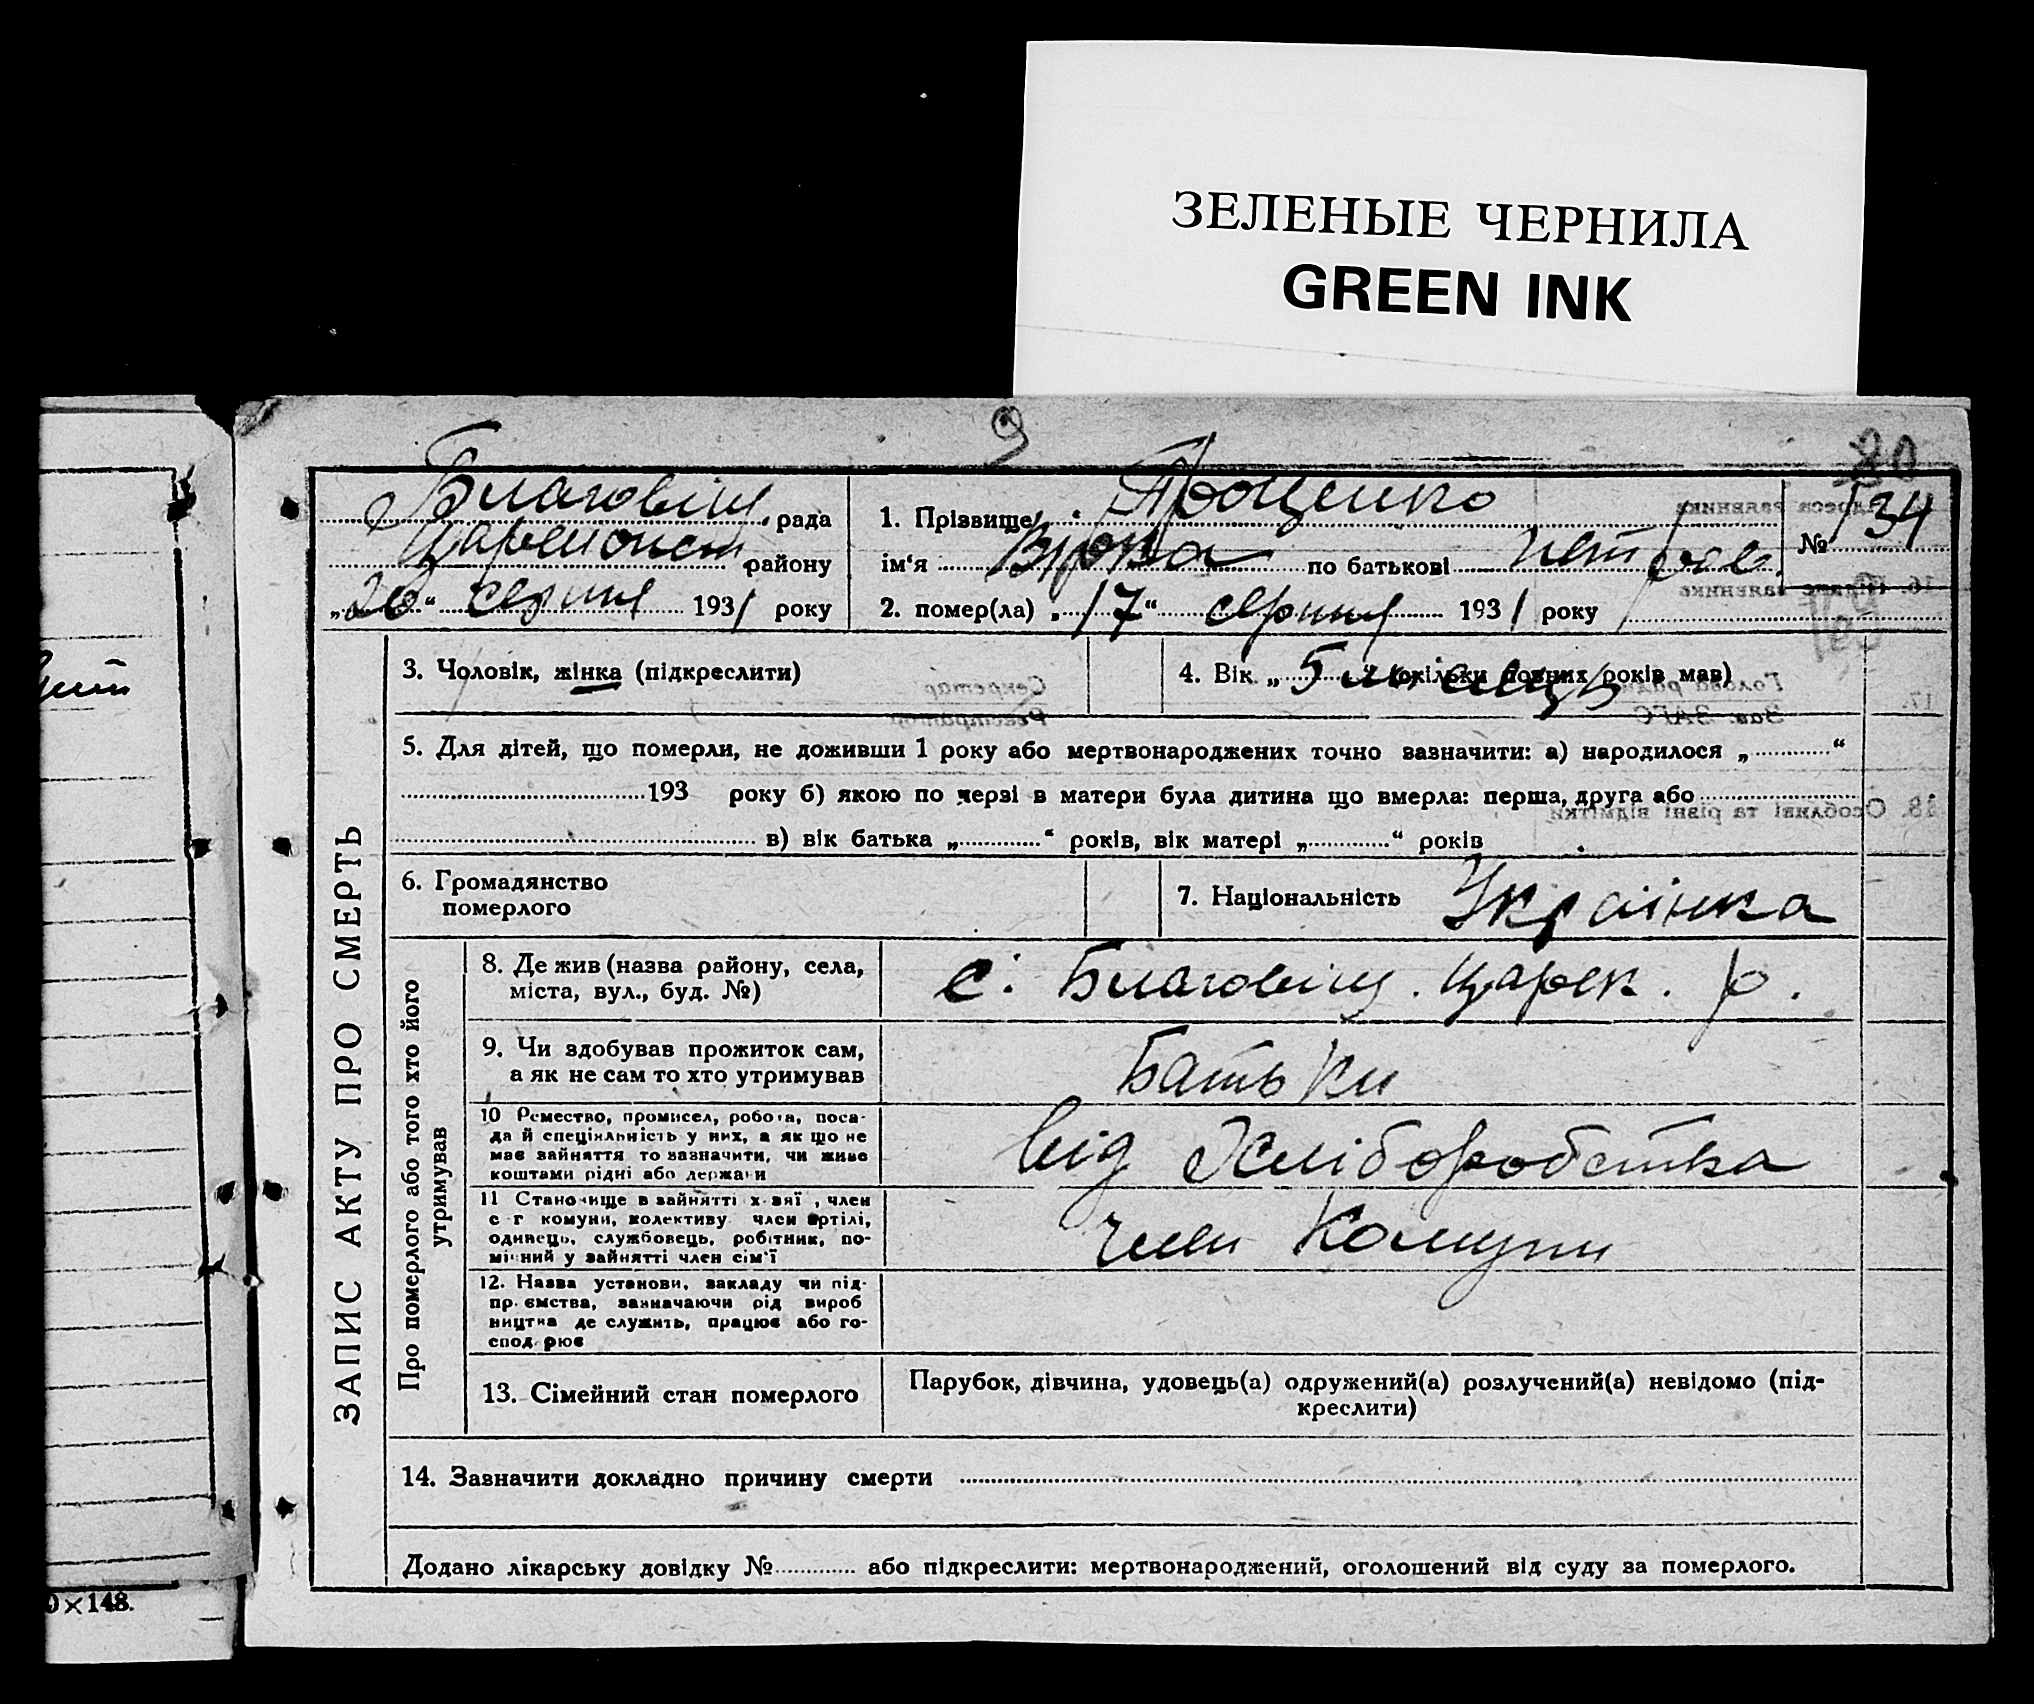 ЗЕЛЕНЫЕ ЧЕРНИЛА
GREEN INK
9
20
Благовіщ. рада
району
„20“ серпня 1931 року
1. Прізвище Проценко
ім‘я Вірка по батькові Петров.
№ 134
2. помер(ла) „17“ серпня 1931 року
3. Чоловік, жінка (підкреслити)
4. Вік „5 місяців (скільки повних років мав)
5. Для дітей, що померли, не доживши 1 року або мертвонароджених точно зазначити: а) народилося „............“
193 року б) якою по черзі в матери була дитина що вмерла: перша, друга або
в) вік батька „............“ років, вік матері „............“ років
6. Громадянство
померлого
7. Національність Українка
ЗАПИС АКТУ ПРО СМЕРТЬ
Про померлого або того хто його
утримував
8. Де жив (назва району, села,
міста, вул., буд. №)
с. Благовіщ. Царек. р.
9. Чи здобував прожиток сам,
а як не сам то хто утримував
Батьки
10 Ремество, промисел, робота, поса-
да й спеціяльність у них, а як що не
має зайняття то зазначити, чи живе
коштами рідні або держави
від Хліборобства
11 Становище в зайнятті х-зяї , член
с г комуни, колективу член артілі,
одинець, службовець, робітник, по-
мічний у зайнятті член сім‘ї
член Комуни
12. Назва установи, закладу чи під-
пр-ємства, зазначаючи рід вироб
ництва де служить, працює або го-
спод рює
13. Сімейний стан померлого
Парубок, дівчина, удовець(а) одружений(а) розлучений(а) невідомо (під-
креслити)
14. Зазначити докладно причину смерти
Додано лікарську довідку №............ або підкреслити: мертвонароджений, оголошений від суду за померлого.
×148.